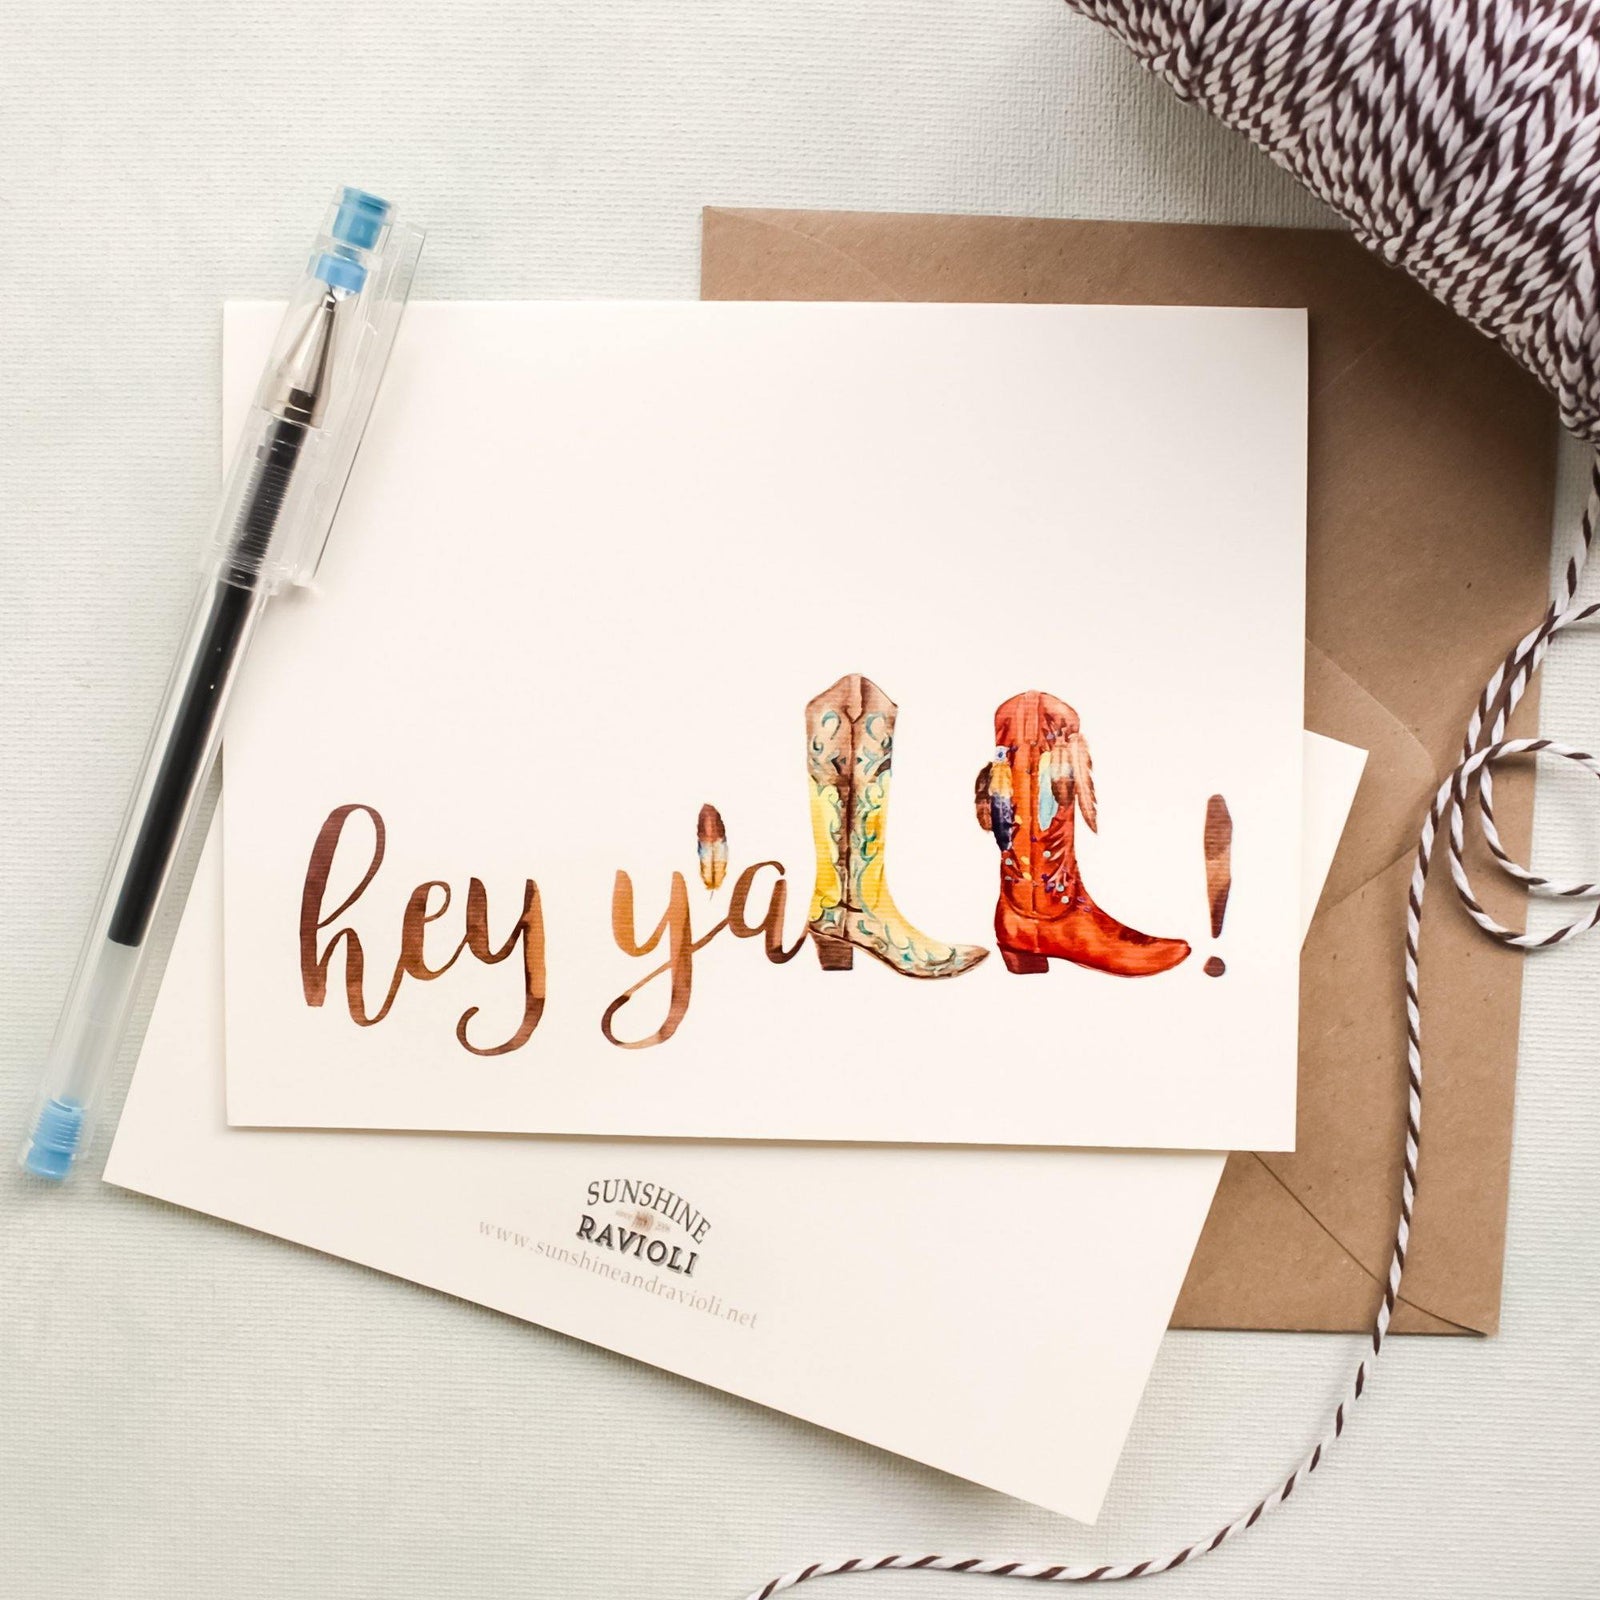 hey y'all!
SUNSHINE
RAVIOLI
www.sunshineandravioli.net